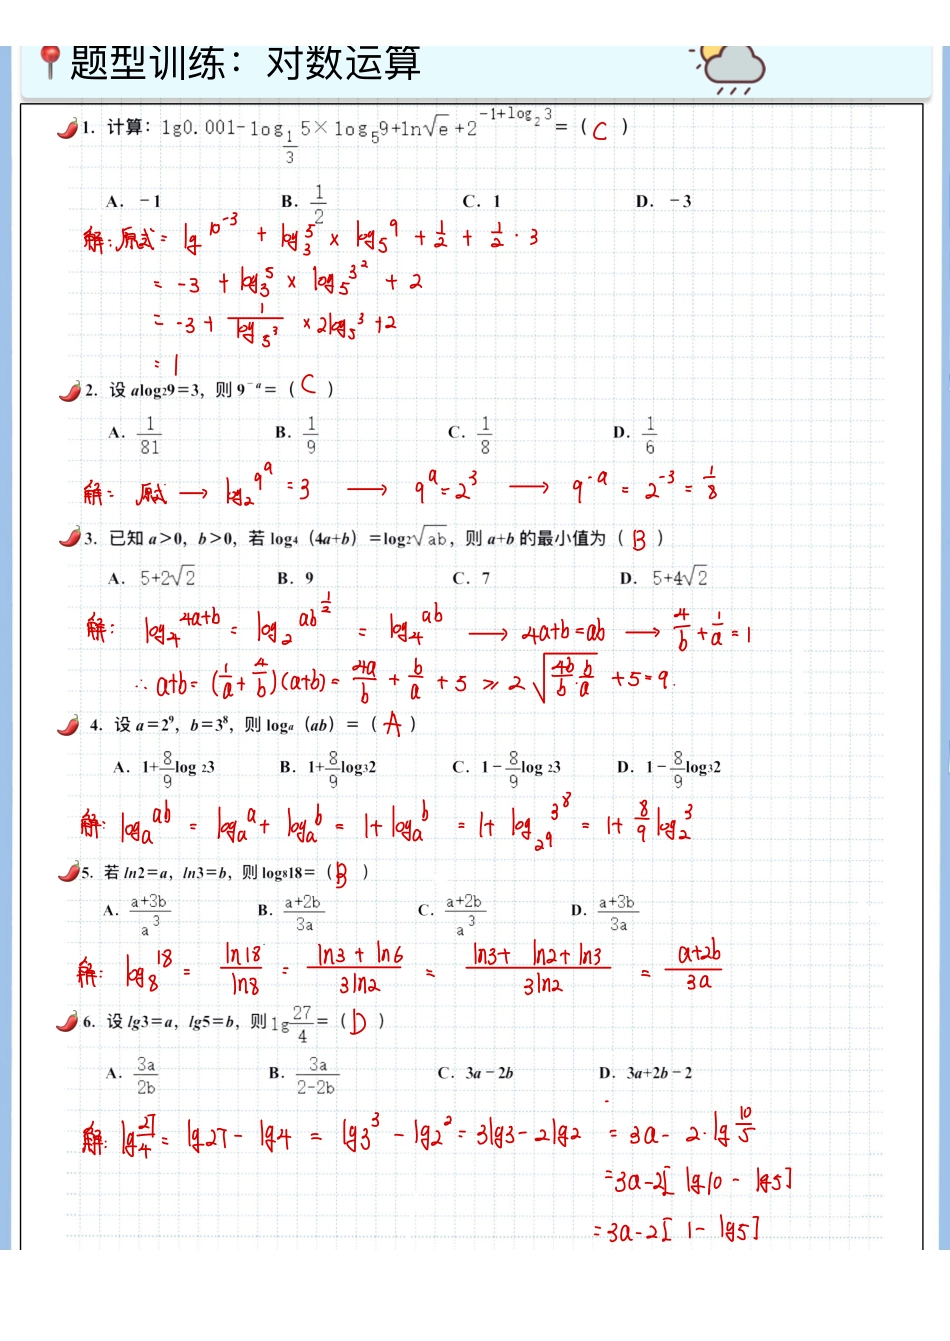 题型训练：对数运算
1．计算：lg0.001-log_{1/3}5×log_5 9+ln√e+2^{-1+log_2 3}=（ C ）
A．-1 B．1/2 C．1 D．-3
解:原式= lg10^{-3} + log_3 5 × log_5 9 + 1/2 + 1/2 · 3
= -3 + log_3 5 × log_5 3^2 + 2
= -3 + 1/log_5 3 × 2log_5 3 + 2
= 1
2．设 alog₂9=3，则 9^{-a}=（ C ）
A．1/81 B．1/9 C．1/8 D．1/6
解: 原式 → log_2 9^a = 3 → 9^a = 2^3 → 9^{-a} = 2^{-3} = 1/8
3．已知 a＞0，b＞0，若 log₄（4a+b）=log₂√ab，则 a+b 的最小值为（ B ）
A．5+2√2 B．9 C．7 D．5+4√2
解: log_4 4a+b = log_2 ab^{1/2} = log_4 ab → 4a+b=ab → 4/b + 1/a = 1
∴ a+b = (1/a + 4/b)(a+b) = 4a/b + b/a + 5 ≥ 2√(4b/b · b/a) + 5 = 9.
4．设 a=2^9，b=3^8，则 log_a（ab）=（ A ）
A．1+8/9 log ₂3 B．1+8/9 log₃2 C．1-8/9 log ₂3 D．1-8/9 log₃2
解: log_a ab = log_a a + log_a b = 1+ log_a b = 1+ log_{2^9} 3^8 = 1+ 8/9 log_2 3
5．若 ln2=a，ln3=b，则 log₈18=（ B ）
A．a+3b/a^3 B．a+2b/3a C．a+2b/a^3 D．a+3b/3a
解: log_8 18 = ln18/ln8 = ln3 + ln6/3ln2 = ln3+ ln2+ ln3/3ln2 = a+2b/3a
6．设 lg3=a，lg5=b，则 lg27/4=（ D ）
A．3a/2b B．3a/2-2b C．3a-2b D．3a+2b-2
解: lg27/4 = lg27 - lg4 = lg3^3 - lg2^2 = 3lg3-2lg2 = 3a- 2·lg10/5
=3a-2[ lg10 - lg5]
=3a-2[ 1- lg5]